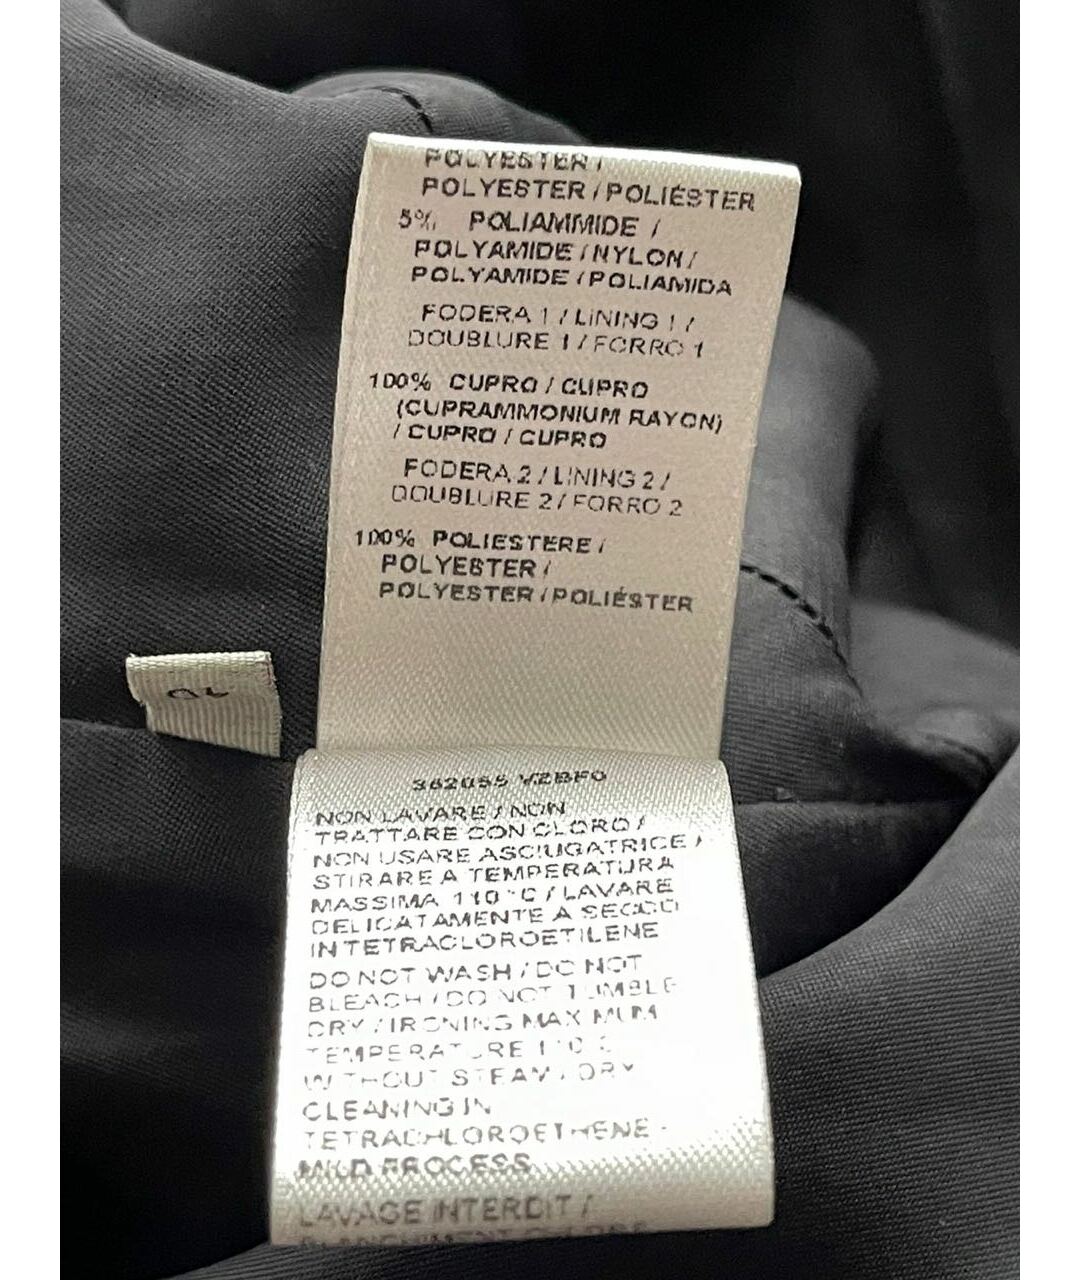 POLYESTER /
POLYESTER / POLIÉSTER
5% POLIAMMIDE /
POLYAMIDE / NYLON /
POLYAMIDE / POLIAMIDA
FODERA 1 / LINING 1 /
DOUBLURE 1 / FORRO 1
100% CUPRO / CUPRO
(CUPRAMMONIUM RAYON)
/ CUPRO / CUPRO
FODERA 2 / LINING 2 /
DOUBLURE 2 / FORRO 2
100% POLIESTERE /
POLYESTER /
POLYESTER / POLIÉSTER
40
362055 VZBF0
NON LAVARE / NON
TRATTARE CON CLORO /
NON USARE ASCIUGATRICE /
STIRARE A TEMPERATURA
MASSIMA 110 °C / LAVARE
DELICATAMENTE A SECCO
IN TETRACLOROETILENE
DO NOT WASH / DO NOT
BLEACH / DO NOT TUMBLE
DRY / IRONING MAXIMUM
TEMPERATURE 110 C
WITHOUT STEAM / DRY
CLEANING IN
TETRACHLOROETHENE -
MILD PROCESS
LAVAGE INTERDIT /